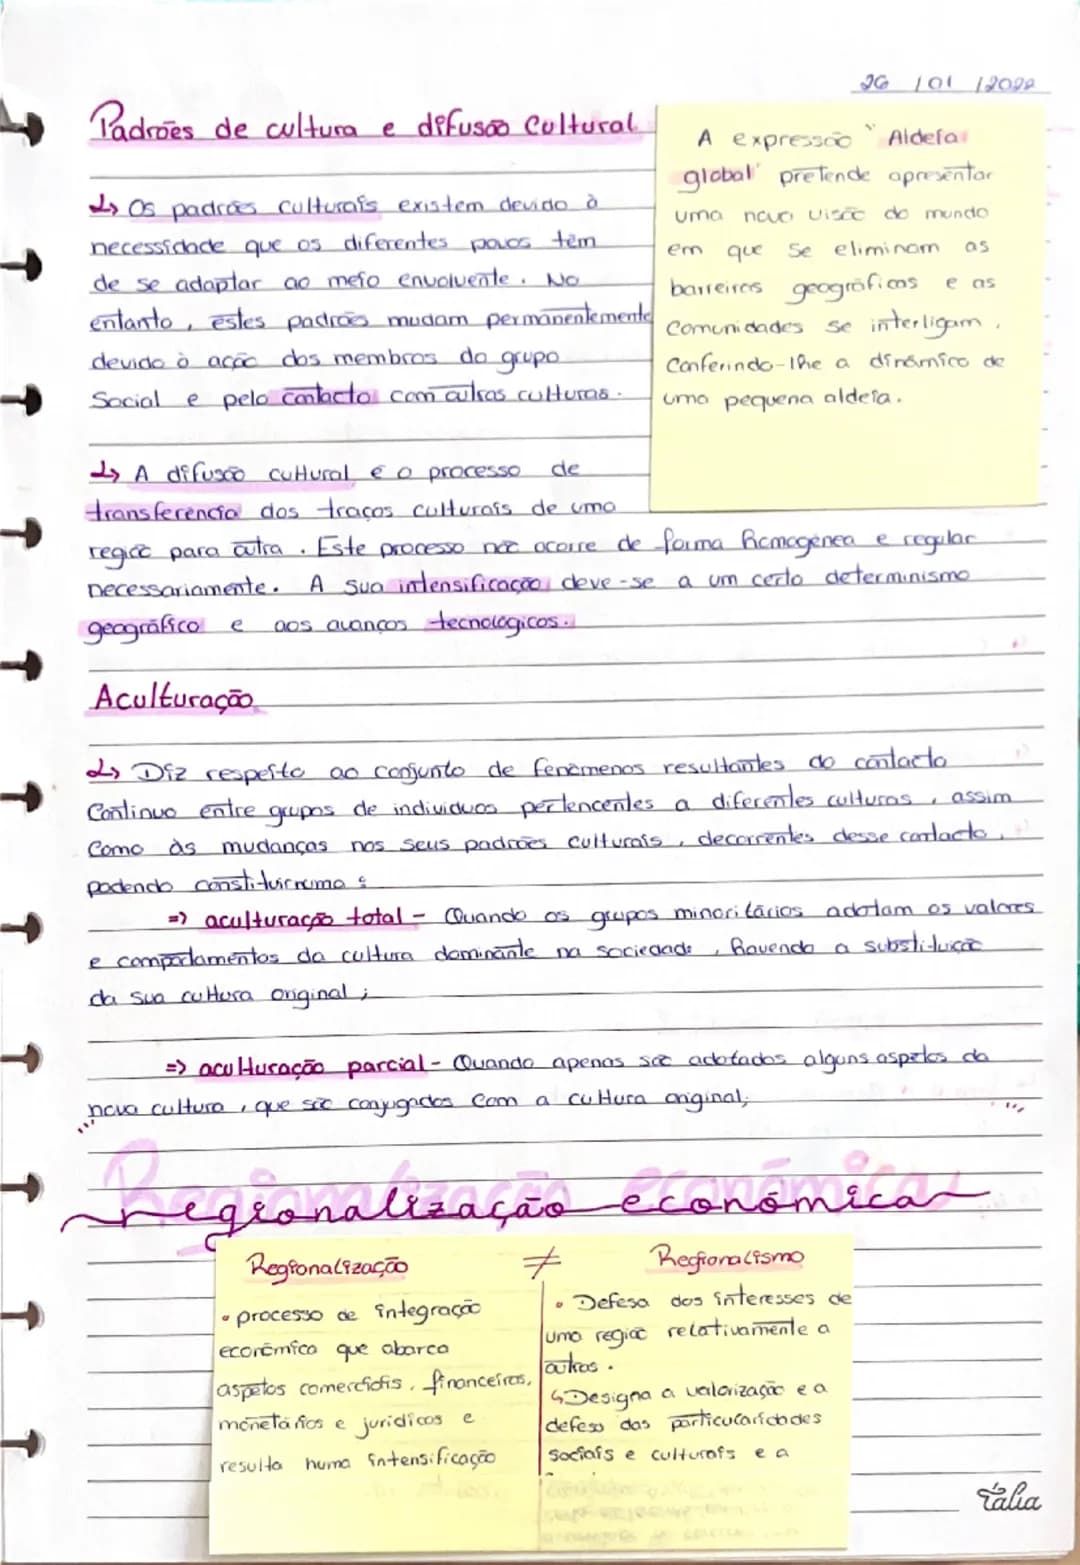 26 / 01 / 2022
Padrões de cultura e difusão Cultural
↳ Os padrões culturais existem devido à
necessidade que os diferentes povos têm
de se adaptar ao meio envolvente. No
entanto, estes padrões mudam permanentemente
devido à ação dos membros do grupo
Social e pelo contacto com outras culturas.
A expressão "Aldeia
global" pretende apresentar
uma nova visão do mundo
em que se eliminam as
barreiras geográficas e as
Comunidades se interligam,
Conferindo-lhe a dinâmica de
uma pequena aldeia.
↳ A difusão cultural é o processo de
transferência dos traços culturais de uma
região para outra. Este processo não ocorre de forma homogénea e regular
necessariamente. A sua intensificação deve-se a um certo determinismo
geográfico e aos avanços tecnológicos.
Aculturação
↳ Diz respeito ao conjunto de fenómenos resultantes do contacto
Contínuo entre grupos de indivíduos pertencentes a diferentes culturas, assim
Como às mudanças nos seus padrões culturais, decorrentes desse contacto,
podendo constituir numa:
=> aculturação total - Quando os grupos minoritários adotam os valores
e comportamentos da cultura dominante na sociedade, havendo a substituição
da sua cultura original;
=> aculturação parcial - Quando apenas são adotados alguns aspetos da
nova cultura, que são conjugados com a cultura original;
Regionalização económica
Regionalização ≠ Regionalismo
• processo de integração
económica que abarca
aspetos comerciais, financeiros,
monetários e jurídicos e
resulta numa intensificação
• Defesa dos interesses de
uma região relativamente a
outras.
↳ Designa a valorização e a
defesa das particularidades
sociais e culturais e a
Tália